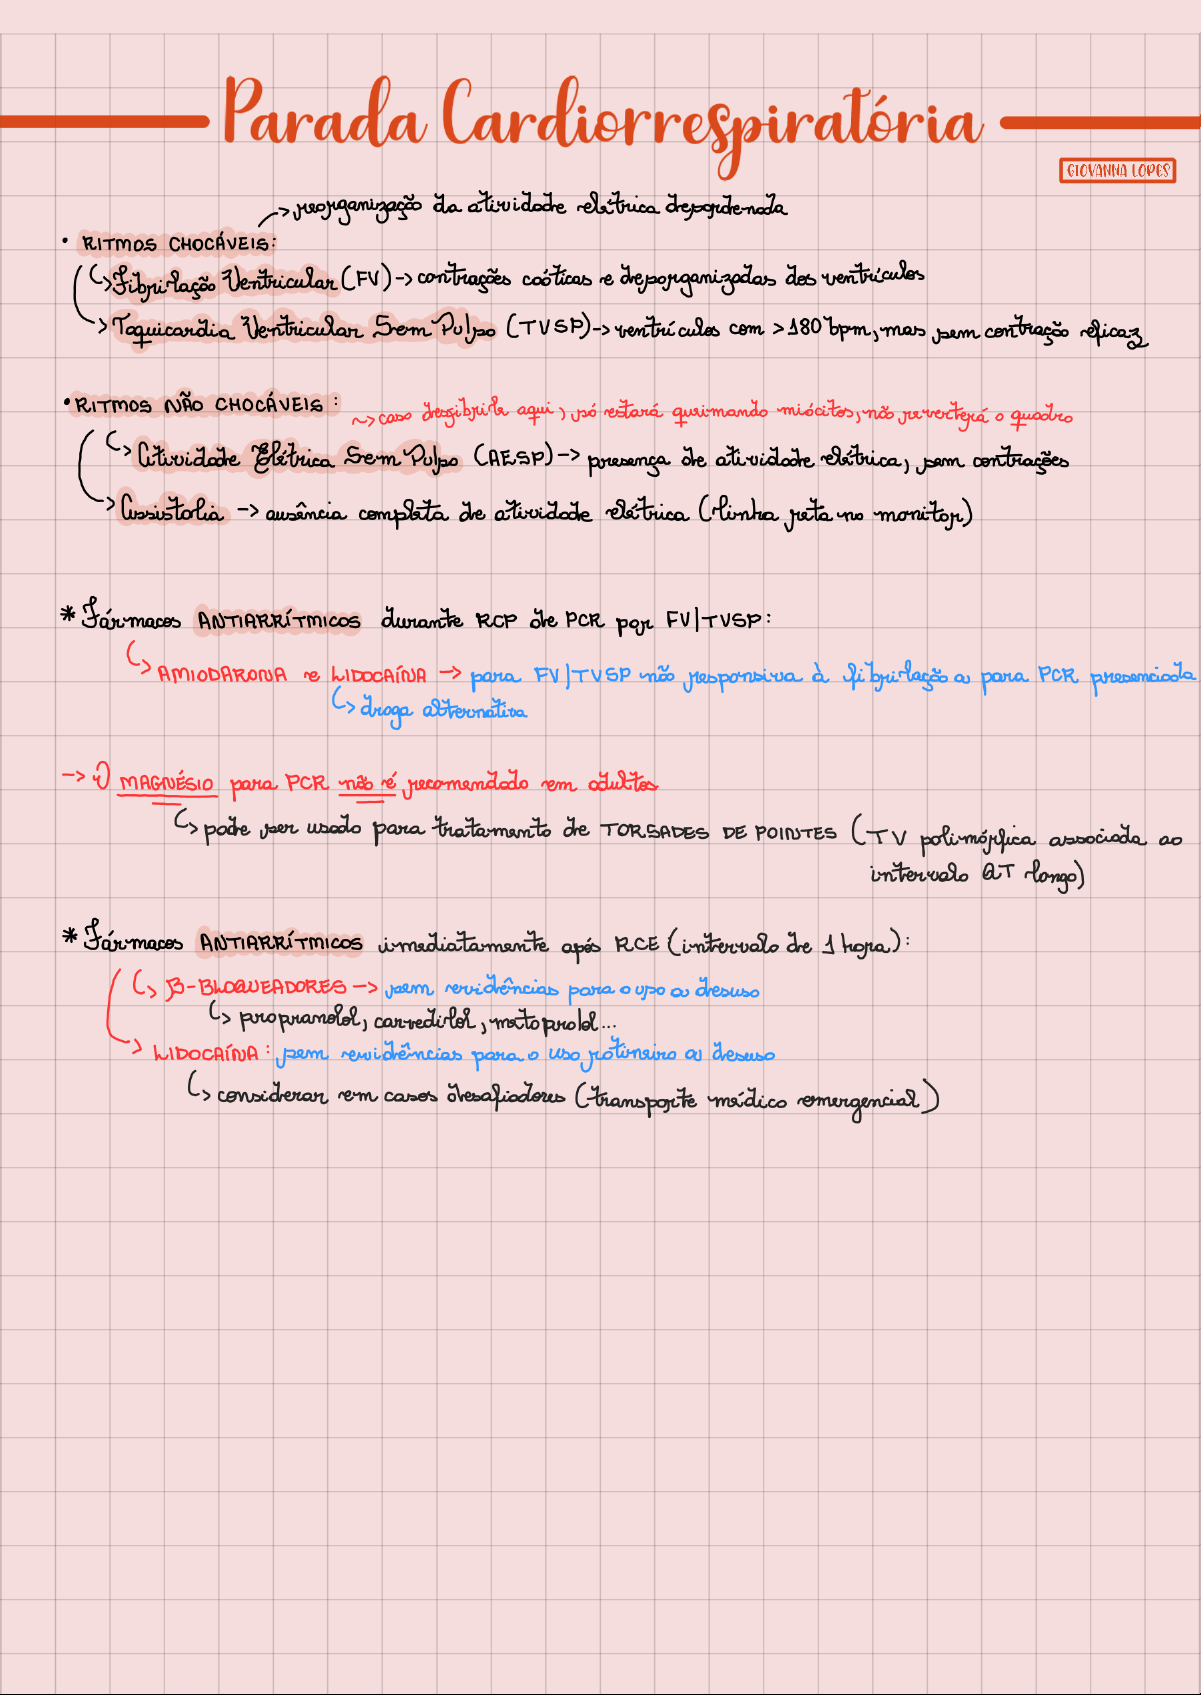 Parada Cardiorrespiratória
GIOVANNA LOPES
-> reorganização da atividade elétrica desordenada
• RITMOS CHOCÁVEIS:
↳ Fibrilação Ventricular (FV) -> contrações caóticas e desorganizadas dos ventrículos
↳ Taquicardia Ventricular Sem Pulso (TVSP) -> ventrículos com >180 bpm, mas sem contração eficaz
• RITMOS NÃO CHOCÁVEIS:
~> caso desfibrile aqui, só estará queimando miócitos, não reverterá o quadro
↳ Atividade Elétrica Sem Pulso (AESP) -> presença de atividade elétrica, sem contrações
↳ Assistolia -> ausência completa de atividade elétrica (linha reta no monitor)
* Fármacos ANTIARRÍTMICOS durante RCP de PCR por FV|TVSP:
↳ AMIODARONA e LIDOCAÍNA -> para FV|TVSP não responsiva à fibrilação a para PCR presenciada
↳ droga alternativa
-> O MAGNÉSIO para PCR não é recomendado em adultos
↳ pode ser usado para tratamento de TORSADES DE POINTES (TV polimórfica associada ao
intervalo QT longo)
* Fármacos ANTIARRÍTMICOS imediatamente após RCE (intervalo de 1 hora):
↳ β-BLOQUEADORES -> sem evidências para o uso a desuso
↳ propranolol, carvedilol, metoprolol...
↳ LIDOCAÍNA: sem evidências para o uso rotineiro a desuso
↳ considerar em casos desafiadores (transporte médico emergencial)